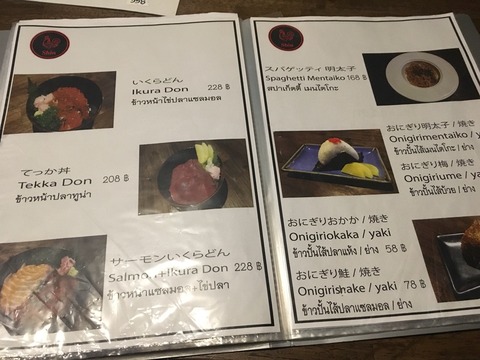 いくらどん
Ikura Don 228 ฿
ข้าวหน้าไข่ปลาแซลมอล
てっか丼
Tekka Don 208 ฿
ข้าวหน้าปลาทูน่า
サーモンいくらどん
Salmon+Ikura Don 228 ฿
ข้าวหน้าแซลมอล+ไข่ปลา
スパゲッティ 明太子
Spaghetti Mentaiko 168 ฿
สปาเก็ตตี้ เมนไดโกะ
おにぎり明太子 / 焼き
Onigirimentaiko / yaki
ข้าวปั้นไส้เมนไดโกะ / ย่าง
おにぎり梅 / 焼き
Onigiriume / yaki
ข้าวปั้นไส้บ๊วย / ย่าง
おにぎりおかか / 焼き
Onigiriokaka / yaki
ข้าวปั้นไส้ปลาแห้ง / ย่าง 58 ฿
おにぎり鮭 / 焼き
Onigirishake / yaki 78 ฿
ข้าวปั้นไส้แซลมอล / ย่าง